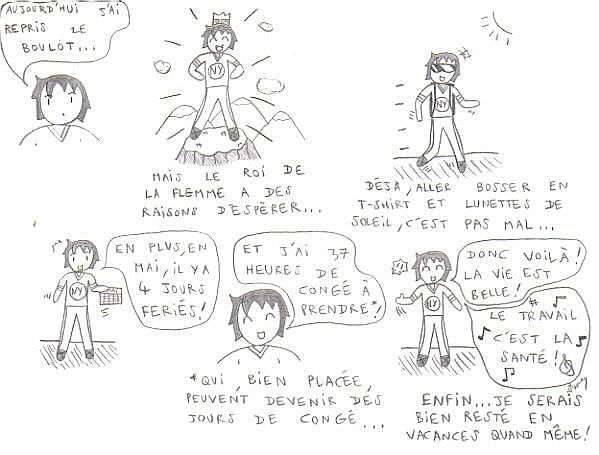 AUJOURD'HUI J'AI
REPRIS LE
BOULOT...
NY
MAIS LE ROI DE
LA FLEMME A DES
RAISONS D'ESPÈRER...
NY
DÉJÀ, ALLER BOSSER EN
T-SHIRT ET LUNETTES DE
SOLEIL, C'EST PAS MAL...
NY
EN PLUS, EN
MAI, IL Y A
4 JOURS
FERIÉS!
ET J'AI 37
HEURES DE
CONGÉ À
PRENDRE*!
*QUI, BIEN PLACÉE,
PEUVENT DEVENIR DES
JOURS DE CONGÉ...
NY
DONC VOILÀ!
LA VIE EST
BELLE!
LE TRAVAIL
C'EST LA
SANTÉ!
ENFIN...JE SERAIS
BIEN RESTÉ EN
VACANCES QUAND MÊME!